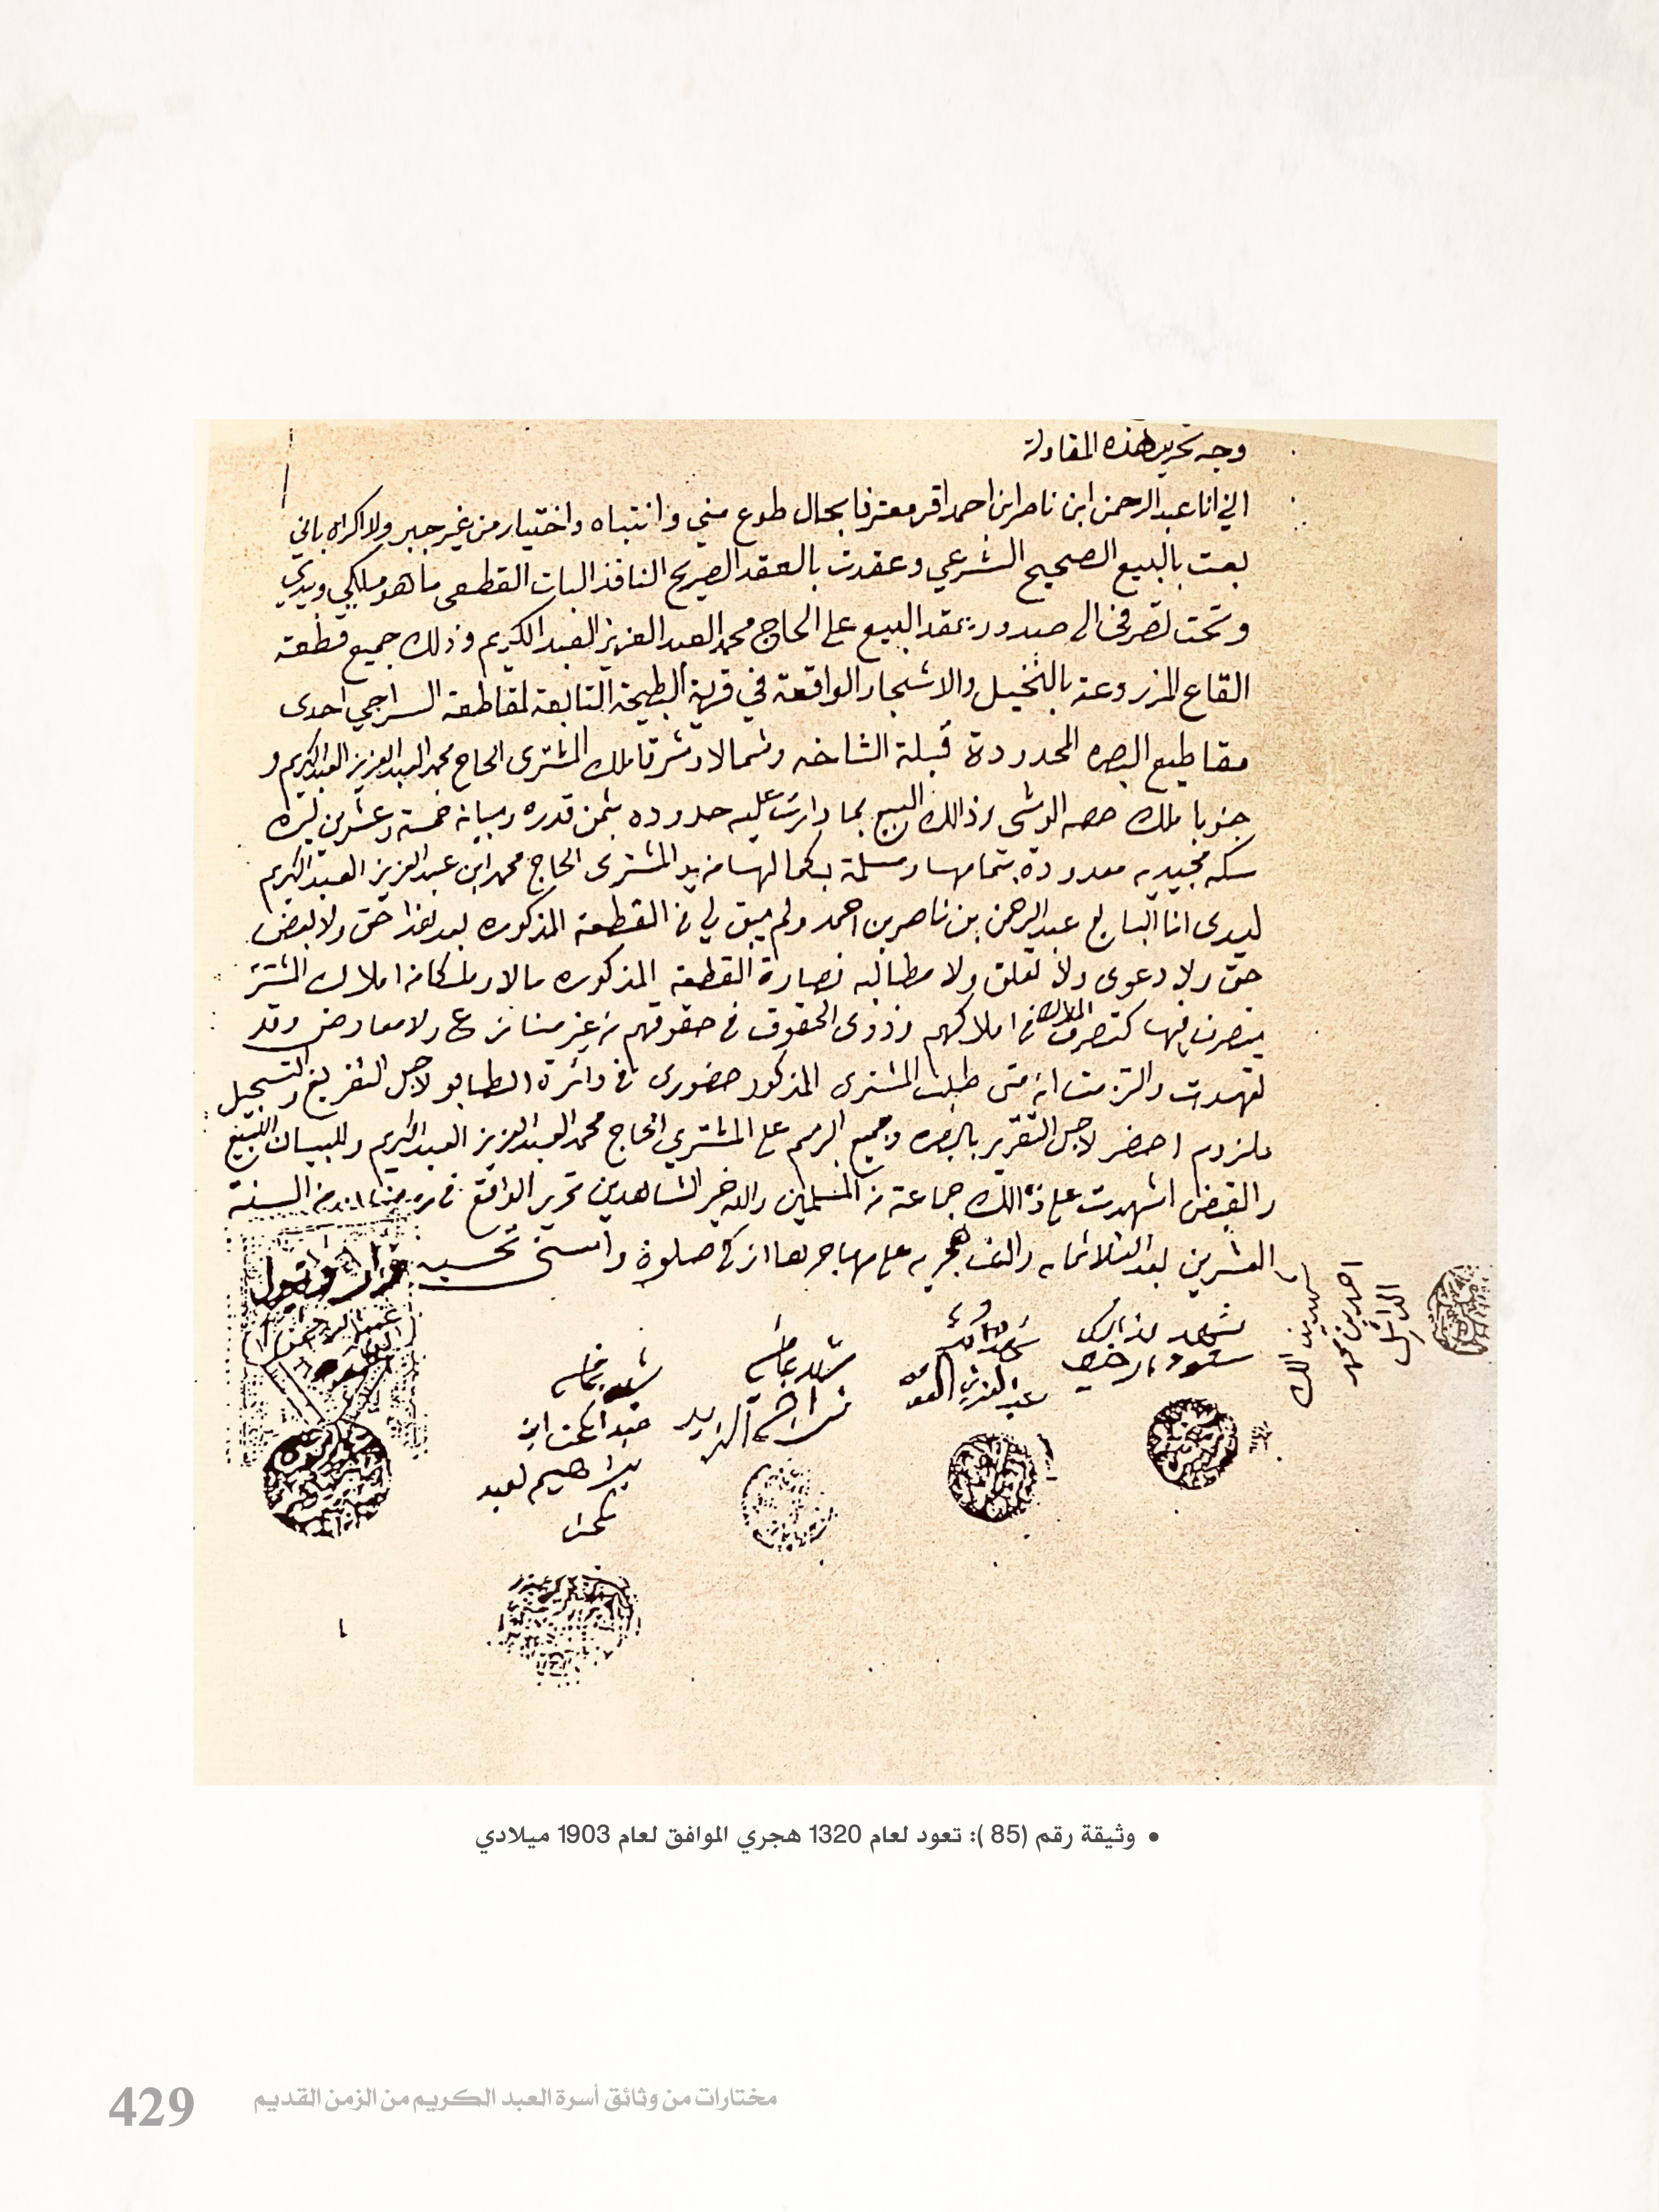 وجه تحرير هذه المقاولة
الي انا عبدالرحمن ابن ناصر ابن احمد اقر معترفا بحال طوع مني وانتباه واختيار من غير جبر ولا اكراه باني
بعت بالبيع الصحيح الشرعي وعقدت بالعقد الصريح النافذ البات القطعي ما هو ملكي وبيدي
وتحت تصرفي الى صدور عقد البيع على الحاج محمد العبد العزيز العبد الكريم وذلك جميع قطعة
القاع المزروعة بالنخيل والاشجار الواقعة في قرية البطيحة التابعة لمقاطعة السراجي احدى
مقاطيع البصره المحدودة قبلة الشاخه وشمالا وشرقا ملك المشتري الحاج محمد العبد العزيز العبد الكريم و
جنوبا ملك حصه الوشمي وذالك البيع بما دارت عليه حدوده بثمن قدره وبيانه خمسة وعشرين ليره
سكه مجيديه معدودة بتمامها ومسلمة بكمالها من يد المشتري الحاج محمد ابن عبد العزيز العبد الكريم
ليدي انا البايع عبد الرحمن بن ناصر بن احمد ولم يبق لي في القطعة المذكوره بعد هذا حق ولا بعض
حق ولا دعوى ولا تعلق ولا مطالبه فصارة القطعة المذكوره مالا وملكا من املاك المشتري
يتصرف فيها كتصرف الملاك في املاكهم وذوي الحقوق في حقوقهم من غير منازع ولا معارض وقد
تعهدت والتزمت انه متى طلب المشتري المذكور حضوري في دائرة الطابو لاجل التفريغ والتسجيل
ملزوم احضر لاجل التقرير بالبصره وجميع الرسم على المشتري الحاج محمد العبد العزيز العبد الكريم وللبيان البيع
والقبض اشهدت على ذالك جماعة من المسلمين والله خير الشاهدين تحرير الواقع في من السنة
العشرين بعد الثلاثمايه والف هجريه على مهاجرها ازكى صلوة واسنى تحيه
قرار وقبول
عبد الرحمن
شهد بذالك
سعود
شهد بذالك
عبد العزيز
شهد بما فيه
ابراهيم
شهد بما فيه
عبد المحسن ابن
ابراهيم لعبد
احمد بن محمد
• وثيقة رقم (85 ): تعود لعام 1320 هجري الموافق لعام 1903 ميلادي
مختارات من وثائق أسرة العبد الكريم من الزمن القديم
429